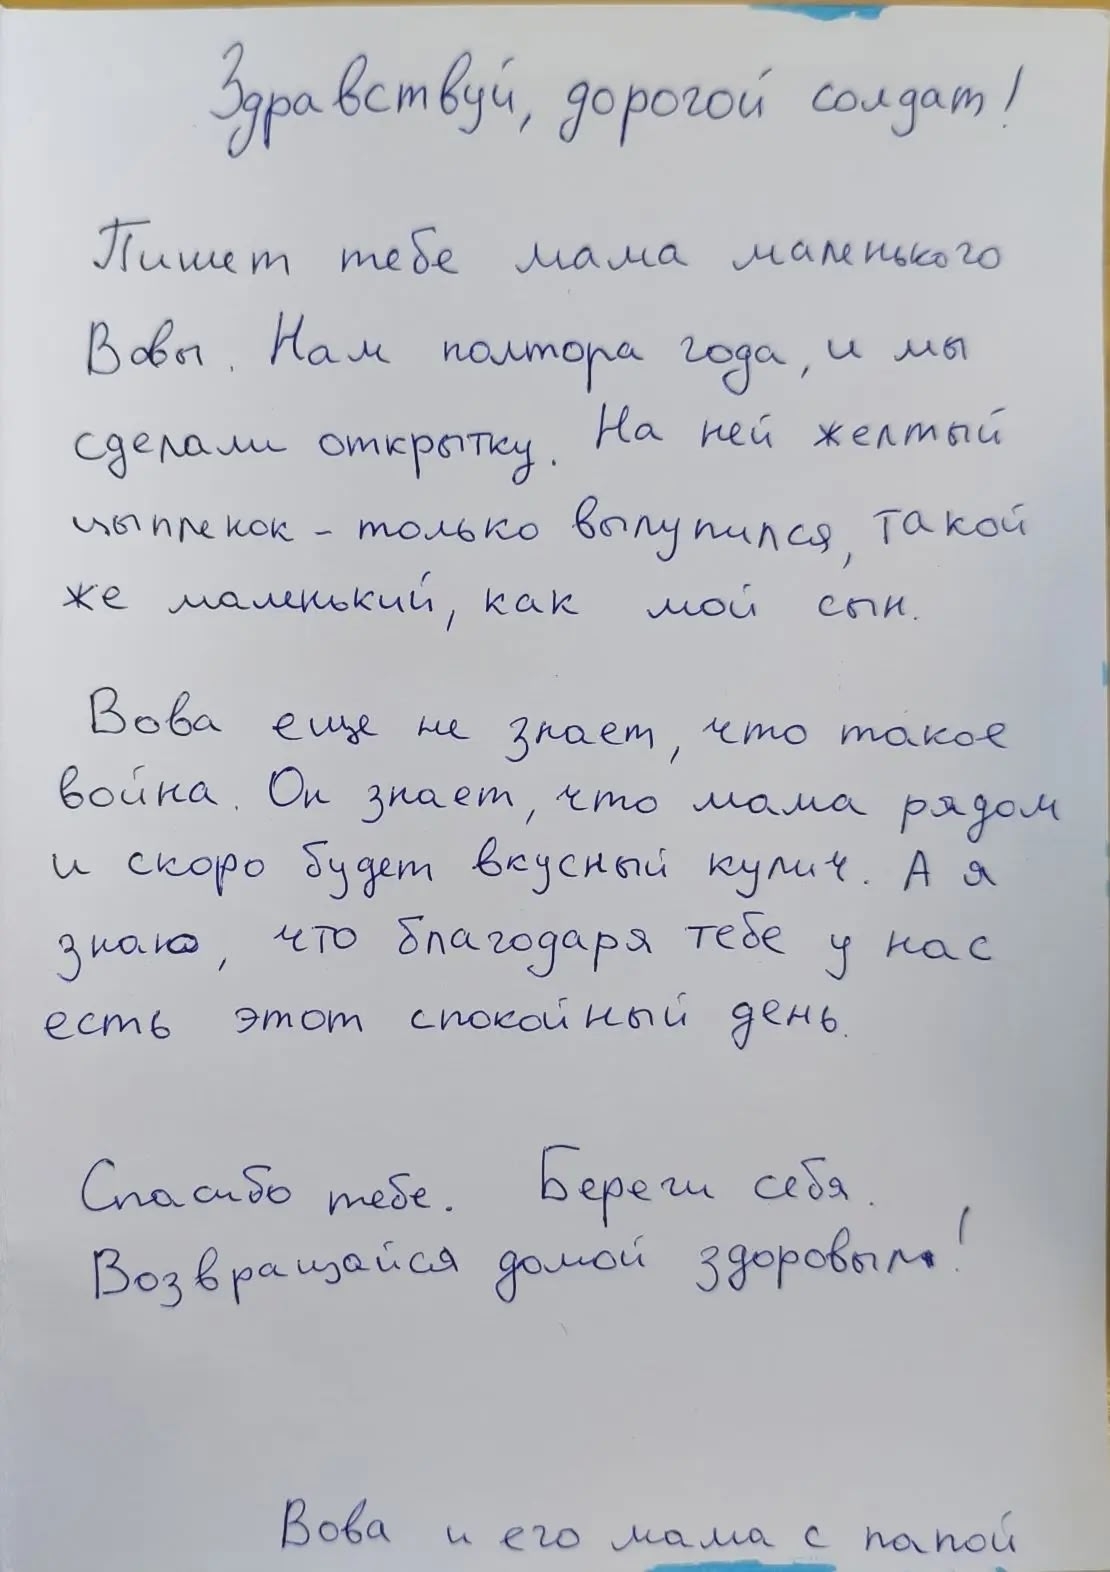 Здравствуй, дорогой солдат!
Пишет тебе мама маленького
Вовы. Нам полтора года, и мы
сделали открытку. На ней желтый
цыпленок - только вылупился, такой
же маленький, как мой сын.
Вова еще не знает, что такое
война. Он знает, что мама рядом
и скоро будет вкусный кулич. А я
знаю, что благодаря тебе у нас
есть этот спокойный день.
Спасибо тебе. Береги себя.
Возвращайся домой здоровым!
Вова и его мама с папой